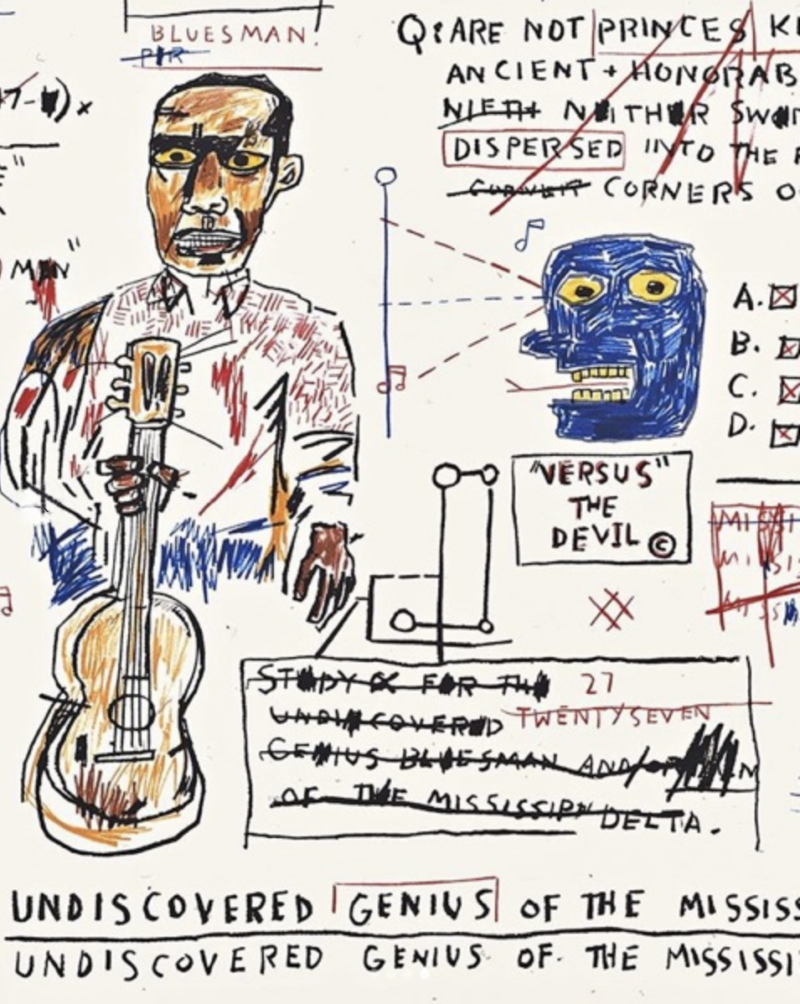 BLUESMAN.
PIR
Q: ARE NOT PRINCES K
ANCIENT + HONORAB
NEITHER SWOR
DISPERSED INTO THE F
CORNERS O
7-
MEN"
A.
B.
C.
D.
"VERSUS"
THE
DEVIL ©
MISSI
MISSIS
MISSI
STUDY FOR THE 27
UNDISCOVERED TWENTYSEVEN
GENIUS BLUESMAN AND/OR
OF THE MISSISSIPPI DELTA.
UNDISCOVERED GENIUS OF THE MISSISS
UNDISCOVERED GENIUS OF THE MISSISSI